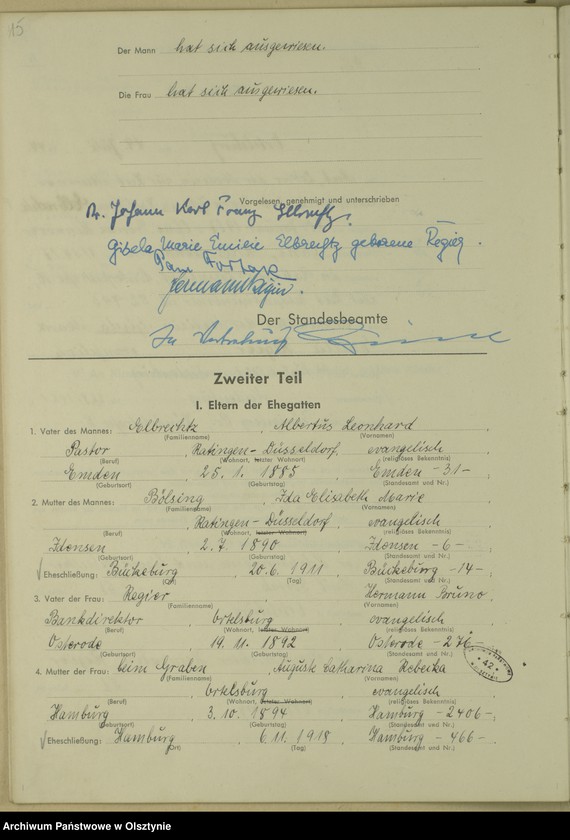 15
Der Mann hat sich ausgewiesen.
Die Frau hat sich ausgewiesen.
Vorgelesen, genehmigt und unterschrieben
Dr. Johann Karl Franz Elbrechtz.
Gisela Marie Emilie Elbrechtz geborene Regier.
Paul
Hermann Regier.
Der Standesbeamte
In Vertretung
Zweiter Teil
I. Eltern der Ehegatten
1. Vater des Mannes: Elbrechtz, Albertus Leonhard
(Familienname) (Vornamen)
Pastor, Ratingen-Düsseldorf, evangelisch
(Beruf) (Wohnort, letzter Wohnort) (religiöses Bekenntnis)
Emden, 25. 1. 1885, Emden -31-;
(Geburtsort) (Geburtstag) (Standesamt und Nr.)
2. Mutter des Mannes: Bölsing, Ida Elisabeth Marie
(Familienname) (Vornamen)
Ratingen-Düsseldorf, evangelisch
(Beruf) (Wohnort, letzter Wohnort) (religiöses Bekenntnis)
Idensen, 2. 7. 1890, Idensen -6-;
(Geburtsort) (Geburtstag) (Standesamt und Nr.)
Eheschließung: Bückeburg, 20. 6. 1911, Bückeburg -14-
(Ort) (Tag) (Standesamt und Nr.)
3. Vater der Frau: Regier, Hermann Bruno,
(Familienname) (Vornamen)
Bankdirektor, Ortelsburg, evangelisch
(Beruf) (Wohnort, letzter Wohnort) (religiöses Bekenntnis)
Osterode, 19. 11. 1892, Osterode -276-
(Geburtsort) (Geburtstag) (Standesamt und Nr.)
42
4. Mutter der Frau: beim Graben, Auguste Catharina Rebecka
(Familienname) (Vornamen)
Ortelsburg, evangelisch
(Beruf) (Wohnort, letzter Wohnort) (religiöses Bekenntnis)
Hamburg, 3. 10. 1894, Hamburg -2406-;
(Geburtsort) (Geburtstag) (Standesamt und Nr.)
Eheschließung: Hamburg, 6. 11. 1918, Hamburg -466-.
(Ort) (Tag) (Standesamt und Nr.)
Archiwum Państwowe w Olsztynie